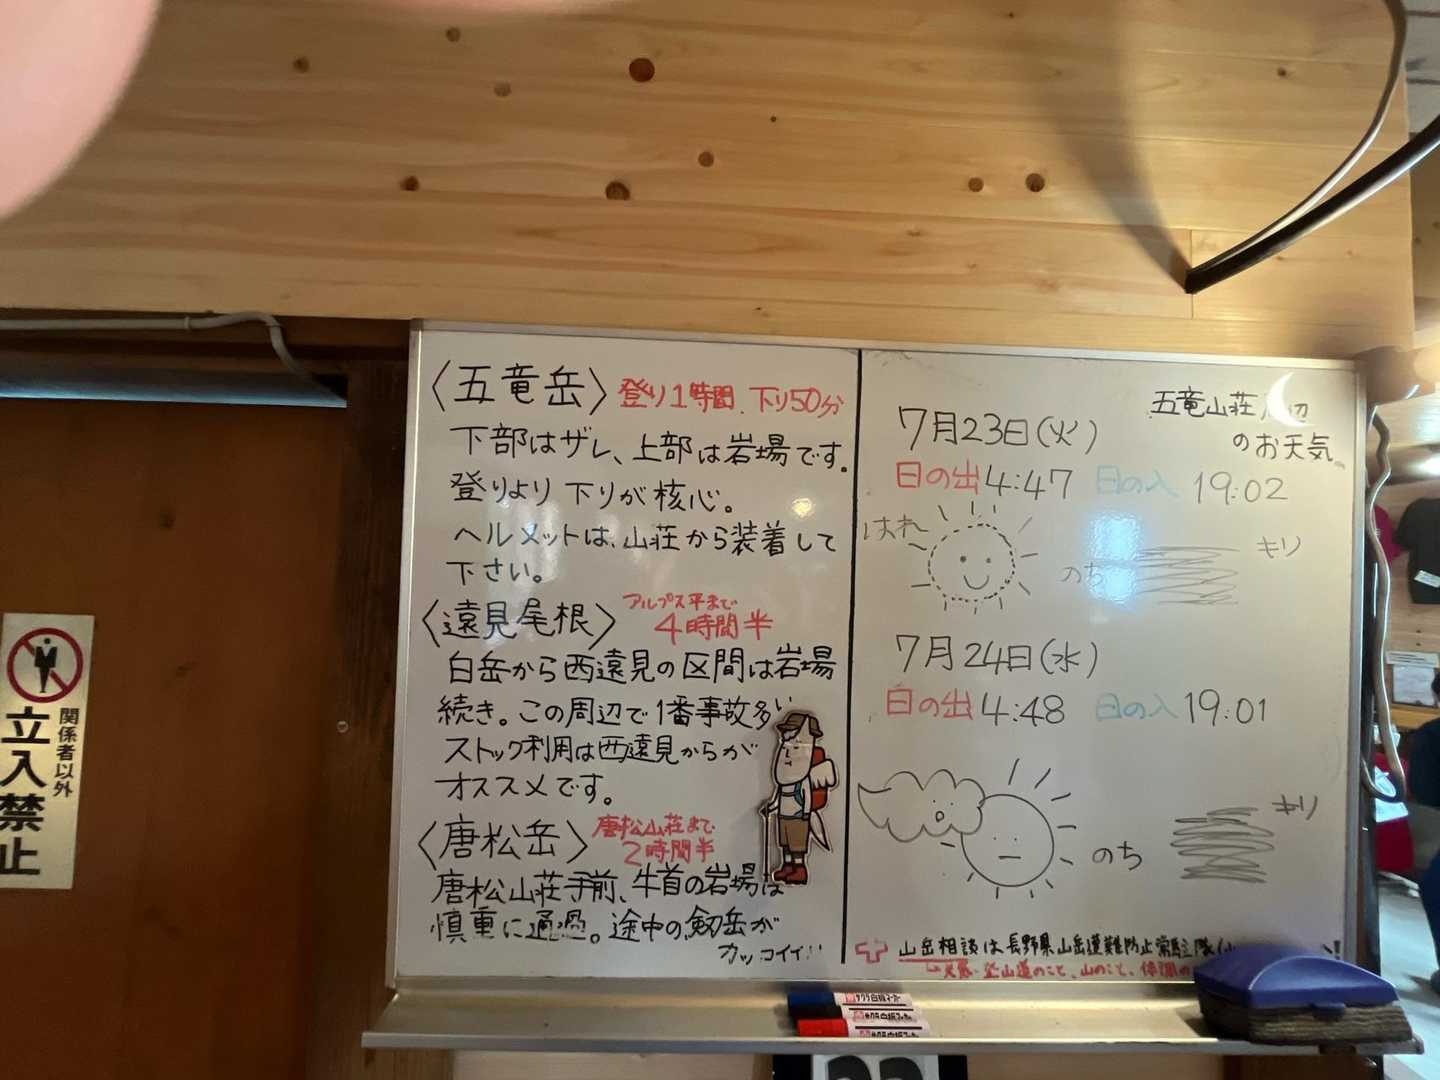 〈五竜岳〉登り1時間、下り50分
下部はザレ、上部は岩場です。
登りより下りが核心。
ヘルメットは、山荘から装着して
下さい。
〈遠見尾根〉アルプス平まで
4時間半
白岳から西遠見の区間は岩場
続き。この周辺で1番事故多い
ストック利用は西遠見からが
オススメです。
〈唐松岳〉唐松山荘まで
2時間半
唐松山荘手前、牛首の岩場は
慎重に通過。途中の劔岳が
カッコイイ!!
五竜山荘周辺
のお天気。
7月23日(火)
日の出4:47 日の入 19:02
はれ のち キリ
7月24日(水)
日の出4:48 日の入 19:01
のち キリ
山岳相談は長野県山岳遭難防止常駐隊
天気・登山道のこと、山のこと、体調の
関係者以外
立入禁止
サクラ白板マーカー
サクラ白板マーカー
サクラ白板マーカー